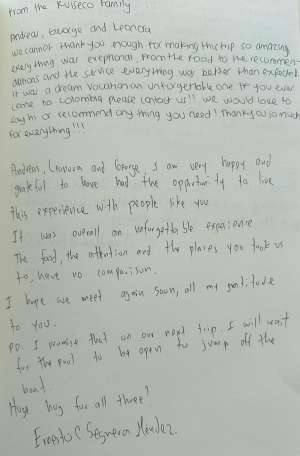 From the Kuiseco Family
Andrea, George and Leonora
we cannot thank you enough for making this trip so amazing
everything was exceptional, from the food to the recommen-
dations and the service everything was better than expected
It was a dream vacation an unforgettable one. If you ever
come to colombia please contact us!! we would love to
say hi or recommend anything you need! Thank you so much
for everything!!!
Andrea, Leonora and George I am very happy and
grateful to have had the opportunity to live
this experience with people like you
It was overall an unforgettable experience
The food, the attention and the places you took us
to, have no comparison.
I hope we meet again soon, all my gratitude
to you.
PD. I promise that on our next trip, I will wait
for the pool to be open to jump off the
boat.
Huge hug for all three!
Ernesto C Segnera Mendez.